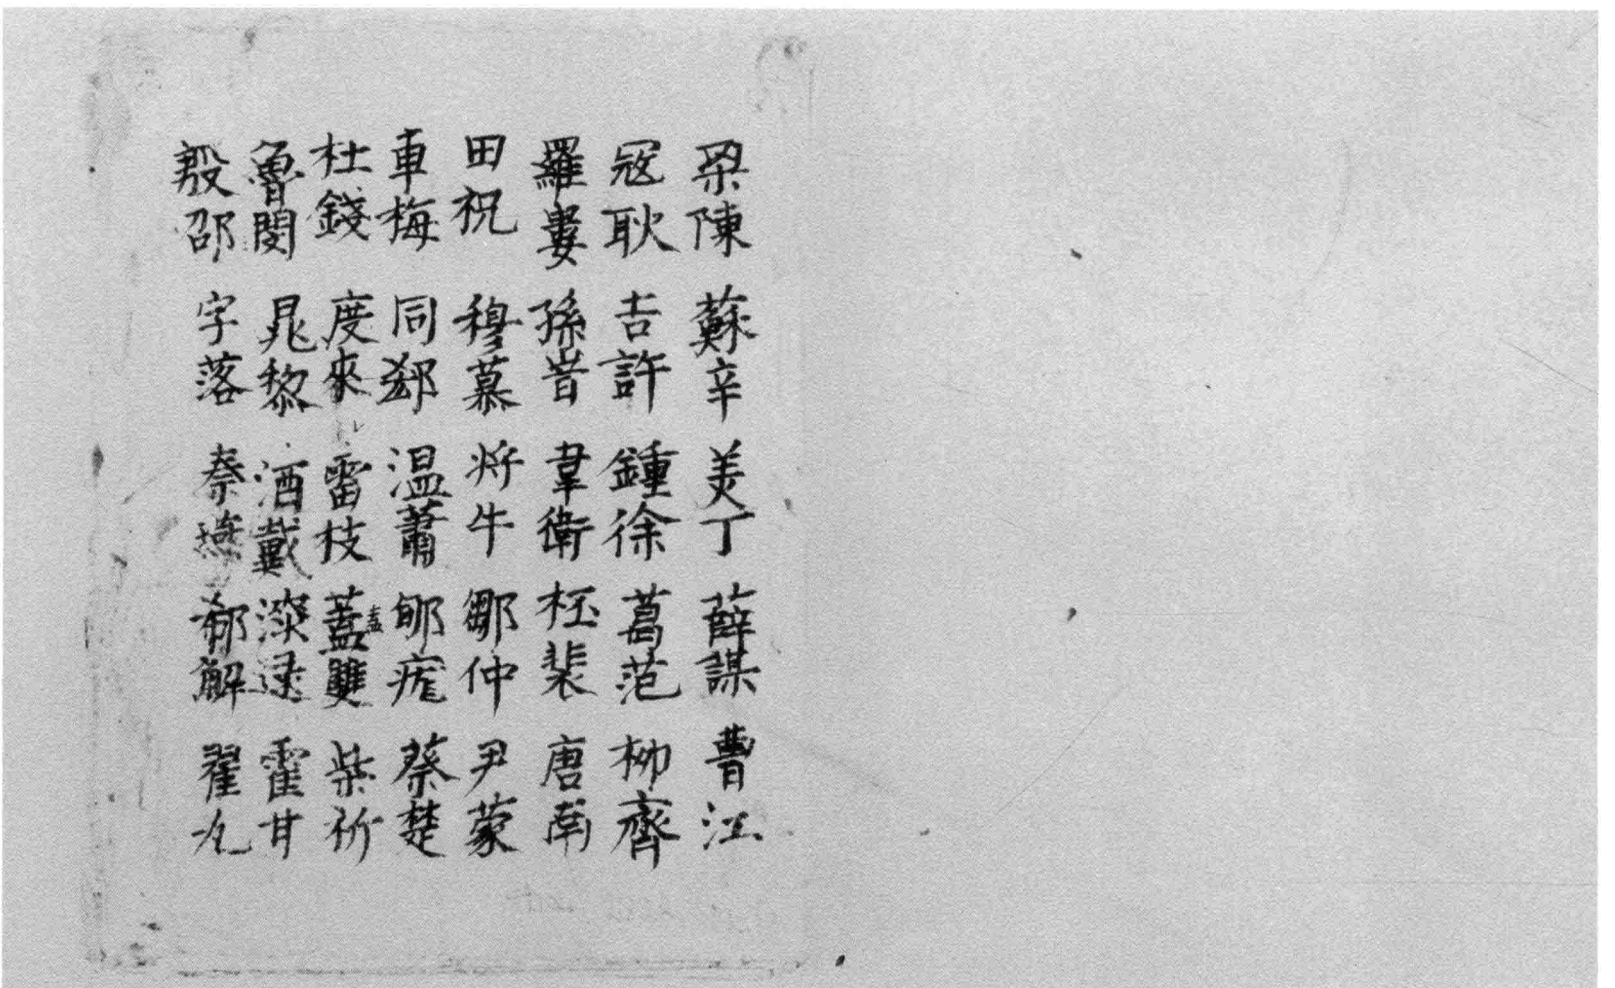 梁陳 蘇辛 美丁 薛謀 曹江
寇耿 吉許 鍾徐 葛范 柳齊
羅婁 孫昔 韋衛 枉裴 唐南
田祝 穆慕 牛 鄒仲 尹蒙
車梅 同郄 温蕭 蔡楚
杜錢 度來 雷枝 蓋盖雙 柴祈
魯閔 晁黎 酒戴 漆逯 霍甘
殷邵 字落 秦燕 郗解 翟九